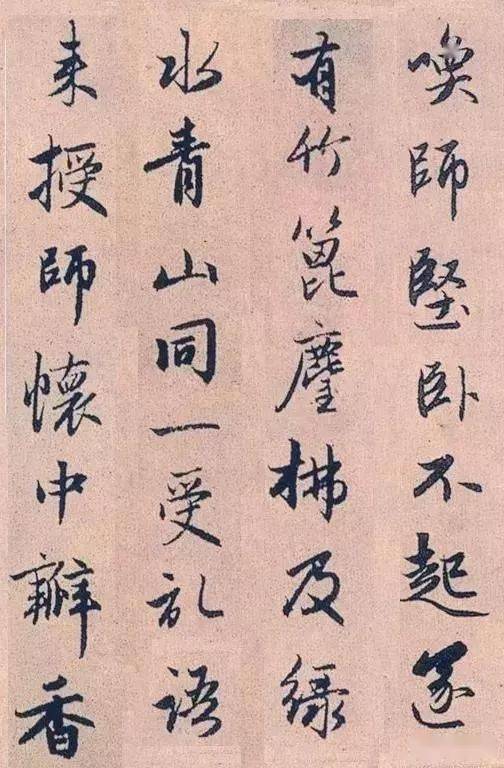 喚師堅卧不起遂
有竹篦麈拂及緑
水青山同一受乱語
来授師懷中瓣香